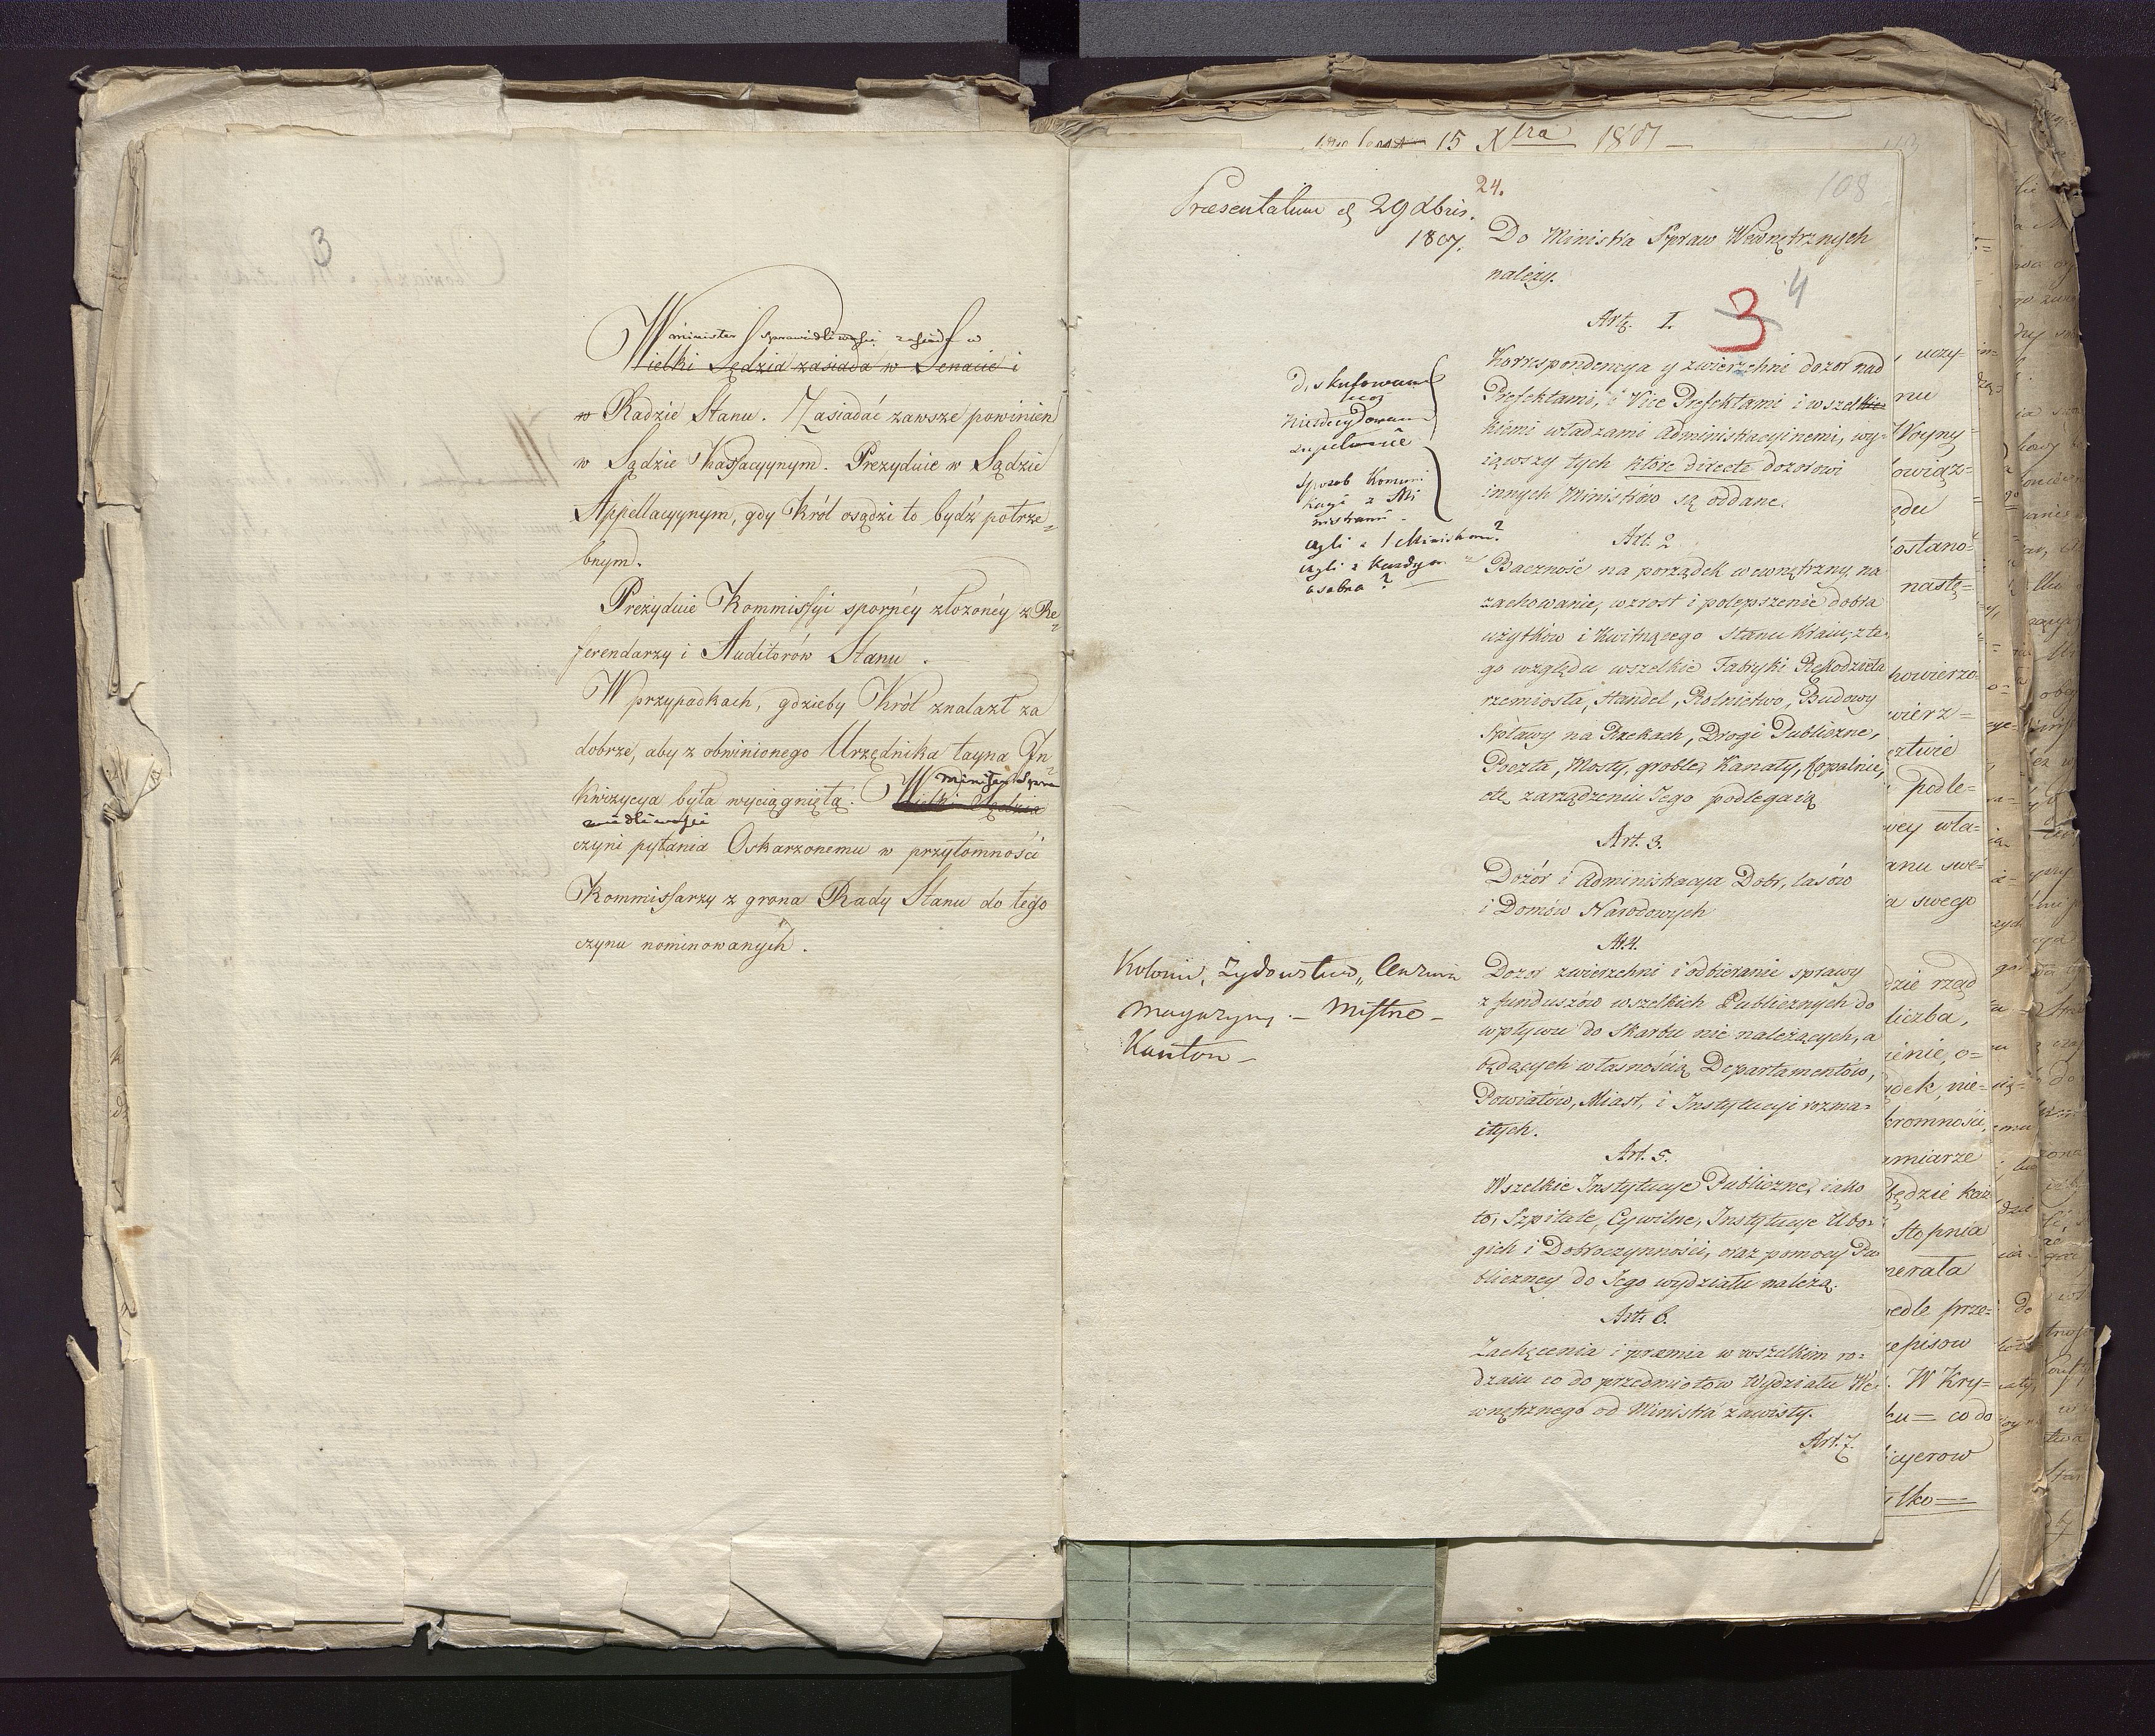 3
Minister Sprawiedliwości zasiada w
Wielki Sędzia zasiada w Senacie i
w Radzie Stanu. Zasiadać zawsze powinien
w Sądzie Kassacyynym. Prezyduie w Sądzie
Appellacyynym, gdy Król osądzi to bydź potrze=
bnym.
Prezyduie Kommissyi sporney złożoney z Re=
ferendarzy i Auditorów Stanu.
W przypadkach, gdzieby Król znalazł za
dobrze, aby z obwinionego Urzędnika tayna In=
kwizycya była wyciągnięta. Wielki Sędzia
Minister Spra
wiedliwości
czyni pytania Oskarzonemu w przytomności
Kommissarzy z grona Rady Stanu do tego
czynu nominowanych.
15 Xbra 1807
24.
108
Præsentatum d 29 Xbris.
1807.
Do Ministra Spraw Wewnętrznych
należy.
3
4
Art. 1.
Korrespondencya y zwierzchni dozor nad
Prefektami, i Vice Prefektami i wszel
kiemi władzami Administracyinemi, wy=
iąwszy tych które directe dozorowi
innych Ministrów są oddane.
Diskutowane
lecz
niedecydowane
zupełnie
sposob Komuni
kacyi z Mi
nistrami.
czyli z 1 Ministrem?
czyli z Każdym
osobno?
Art. 2
Baczność na porządek wewnętrzny, na
zachowanie, wzrost i polepszenie dobra
użytków i kwitnącego Stanu Kraiu, z te=
go względu wszelkie Fabryki Rękodzieła
rzemiosła, Handel, Rolnictwo, Budowy
Spławy na Rzekach, Drogi Publiczne,
Poczta, Mosty, groble, Kanały, Kopalnie,
etc zarządzeniu Jego podlegaią
Art. 3.
Dozór i Administracya Dobr, lasów
i Domów Narodowych
Art. 4.
Dozor zwierzchni i odbieranie sprawy
z funduszów wszelkich Publicznych do
wpływu do Skarbu nie należących, a
będących własnością Departamentów,
Powiatów, Miast, i Instytucyi rozma=
itych.
Kolonie, Żydowstwo, Cenzura
Magazyny. –
Kanton –
Art. 5.
Wszelkie Instytucye Publiczne, iako
to, Szpitale, Cywilne, Instytucye Ubo=
gich i Dobroczynności, oraz pomocy Pu
bliczney do Jego wydziału należą.
Art. 6.
Zachęcenia i præmia w wszelkim ro=
dzaiu co do przedmiotow Wydziału We=
wnętrznego od Ministra zawisły.
Art. 7.